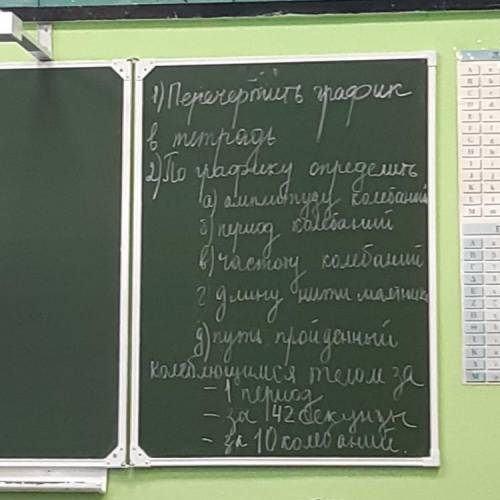 1) Перечертить график
в тетрадь
2) По графику определить
а) амплитуду колебаний
б) период колебаний
в) частоту колебаний
г длину нити маятника
д) путь пройденный
колеблющимся телом за
- 1 период
- за 42 секунды
- за 10 колебаний.